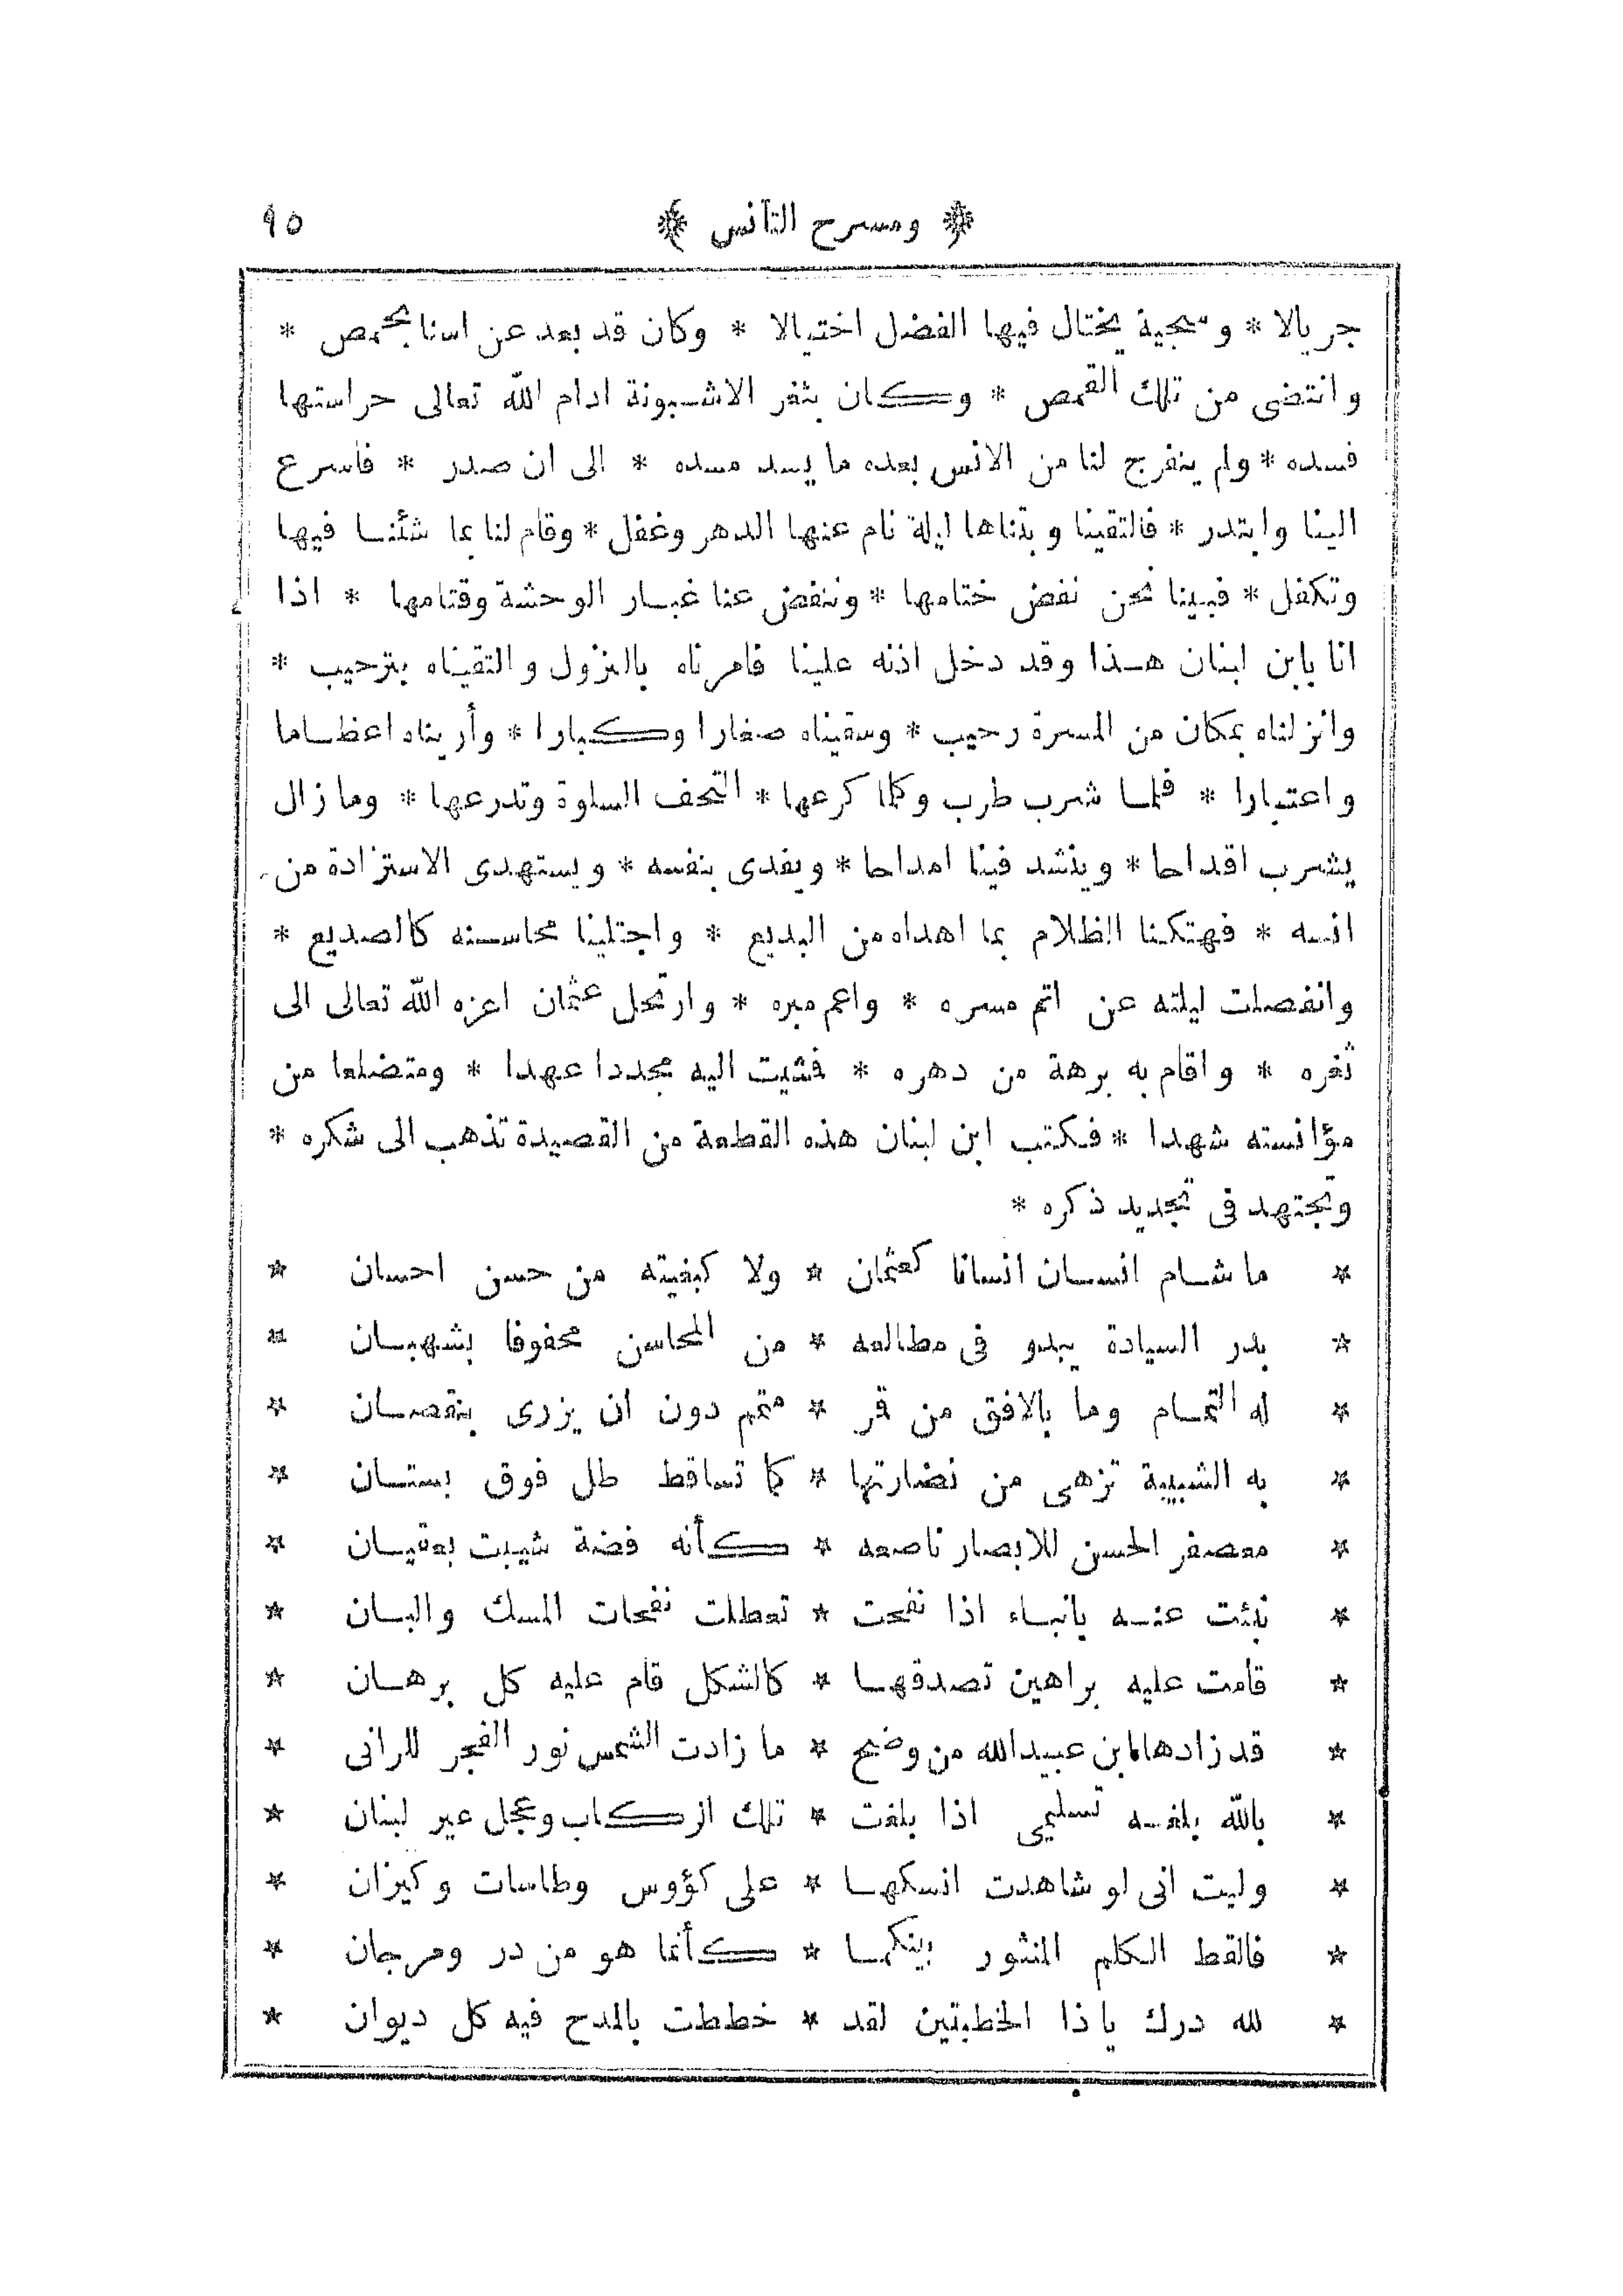 ﴿ ومسرح التآنس ﴾ ٩٥
جريالا * وسجية يختال فيها الفضل اختيالا * وكان قد بعد عن انسنا بحمص *
وانتضى من تلك القمص * وكان بثغر الاشبونة ادام الله تعالى حراستها
فسده * ولم ينفرج لنا من الانس بعده ما يسد مسده * الى ان صدر * فاسرع
الينا وابتدر * فالتقينا وبتناها ليلة نام عنها الدهر وغفل * وقام لنا بما شئنا فيها
وتكفل * فبينا نحن نفض ختامها * وننفض عنا غبار الوحشة وقتامها * اذا
انا بابن لبنان هذا وقد دخل اذنه علينا فامرناه بالنزول والتقيناه بترحيب *
وانزلناه بمكان من المسرة رحيب * وسقيناه صغارا وكبارا * وأريناه اعظاما
واعتبارا * فلما شرب طرب وكلما كرعها * التحف السلوة وتدرعها * وما زال
يشرب اقداحا * وينشد فينا امداحا * ويفدى بنفسه * ويستهدى الاستزادة من
انسه * فهتكنا الظلام بما اهداه من البديع * واجتلينا محاسنه كالصديع *
وانفصلت ليلته عن اتم مسره * واعم مبره * وارتحل عثمان اعزه الله تعالى الى
ثغره * واقام به برهة من دهره * فمشيت اليه مجددا عهدا * ومتضلعا من
مؤانسته شهدا * فكتب ابن لبنان هذه القطعة من القصيدة تذهب الى شكره *
وتجتهد فى تجديد ذكره *
* ما شام انسان انسانا كعثمان * ولا كبغيته من حسن احسان *
* بدر السيادة يبدو فى مطالعه * من المحاسن محفوفا بشهبان *
* له التمام وما بالافق من قر * متمم دون ان يزرى بنقصان *
* به الشبيبة تزهى من نضارتها * كما تساقط طل فوق بستان *
* معصفر الحسن للابصار ناصعه * كأنه فضة شيبت بعقيان *
* نبئت عنه بانباء اذا نفحت * تعطلت نفحات المسك والبان *
* قامت عليه براهين تصدقها * كالشكل قام عليه كل برهان *
* قد زادها ابن عبيدالله من وضح * ما زادت الشمس نور الفجر للرانى *
* بالله بلغه تسليمى اذا بلغت * تلك الركاب وعجل عير لبنان *
* وليت انى لو شاهدت انسكما * على كؤوس وطاسات وكيزان *
* فالقط الكلم المنثور بينكما * كأنما هو من در ومرجان *
* لله درك يا ذا الخطبتين لقد * خططت بالمدح فيه كل ديوان *